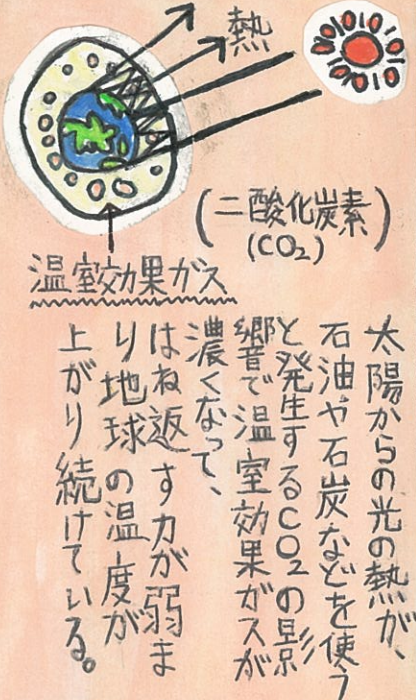 熱
(二酸化炭素)
(CO₂)
温室効果ガス
太陽からの光の熱が、
石油や石炭などを使う
と発生するCO₂の影
響で温室効果ガスが
濃くなって、
はね返す力が弱ま
り地球の温度が
上がり続けている。